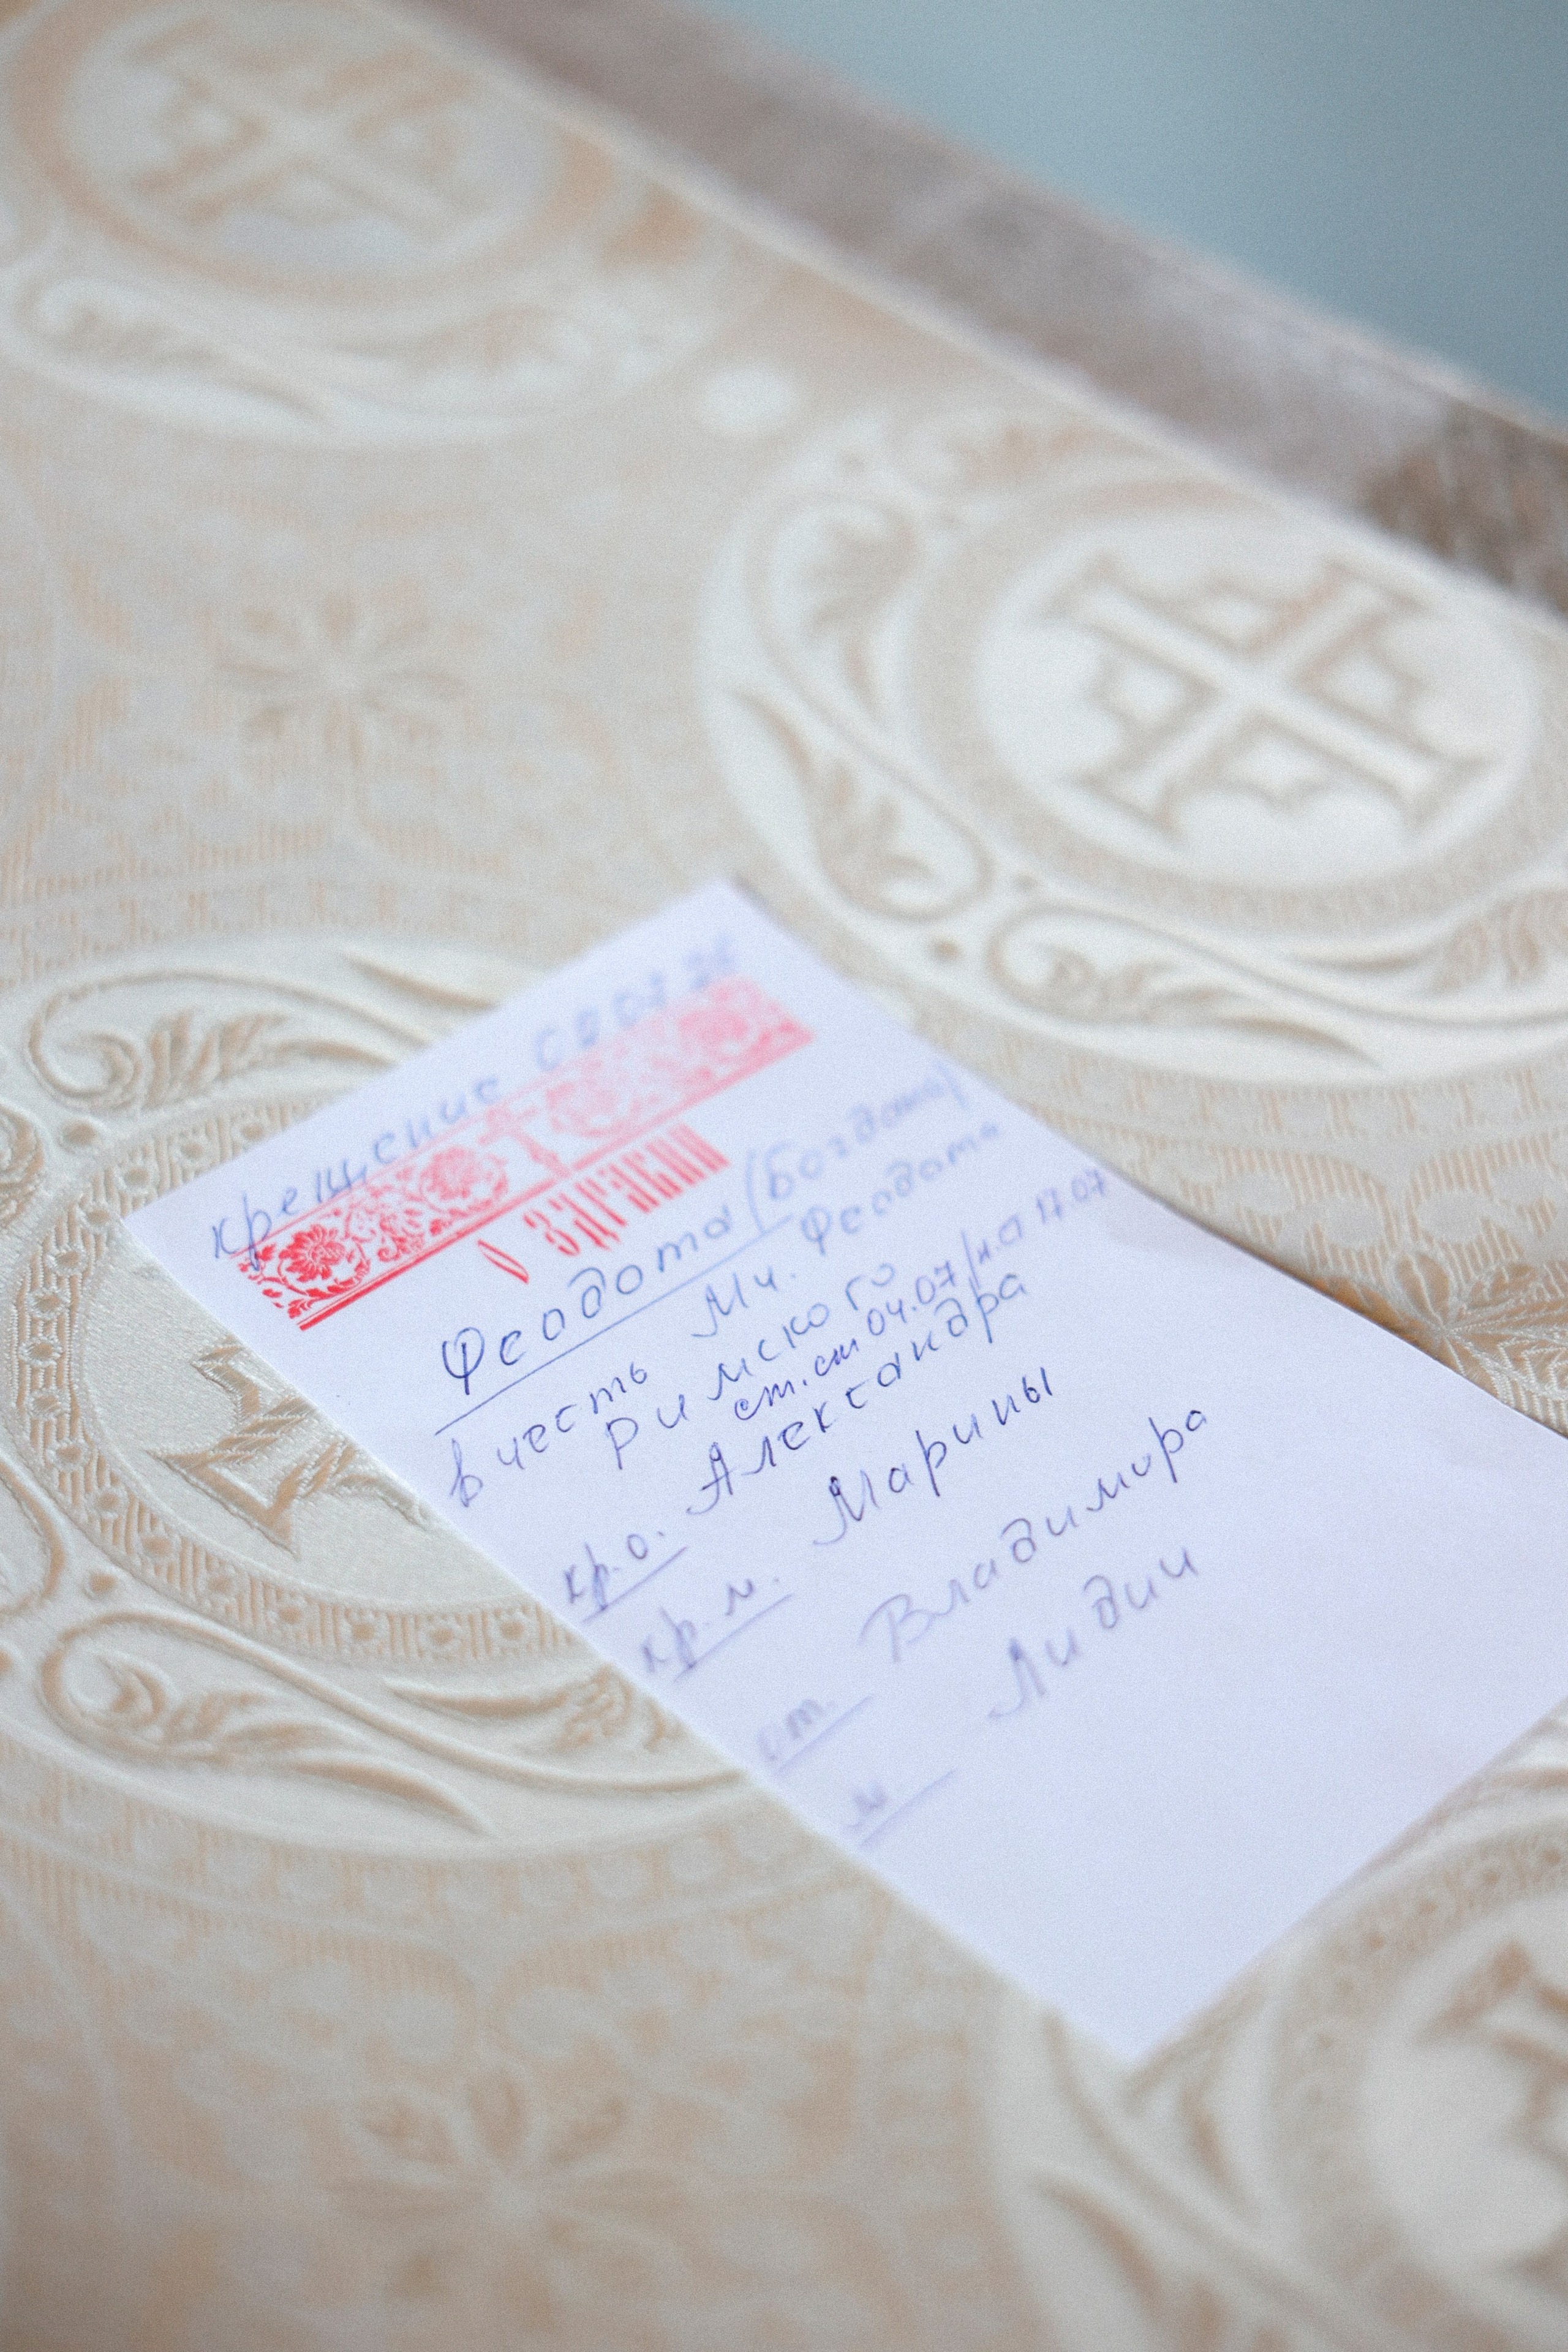 крещение
О ЗДРАВИИ
Феодота (Богдана)
в честь Мч. Феодота
Римского
ст.ст 04.07/н.ст 17.07
кр.о. Александра
кр.м. Марины
от. Владимира
м. Лидии